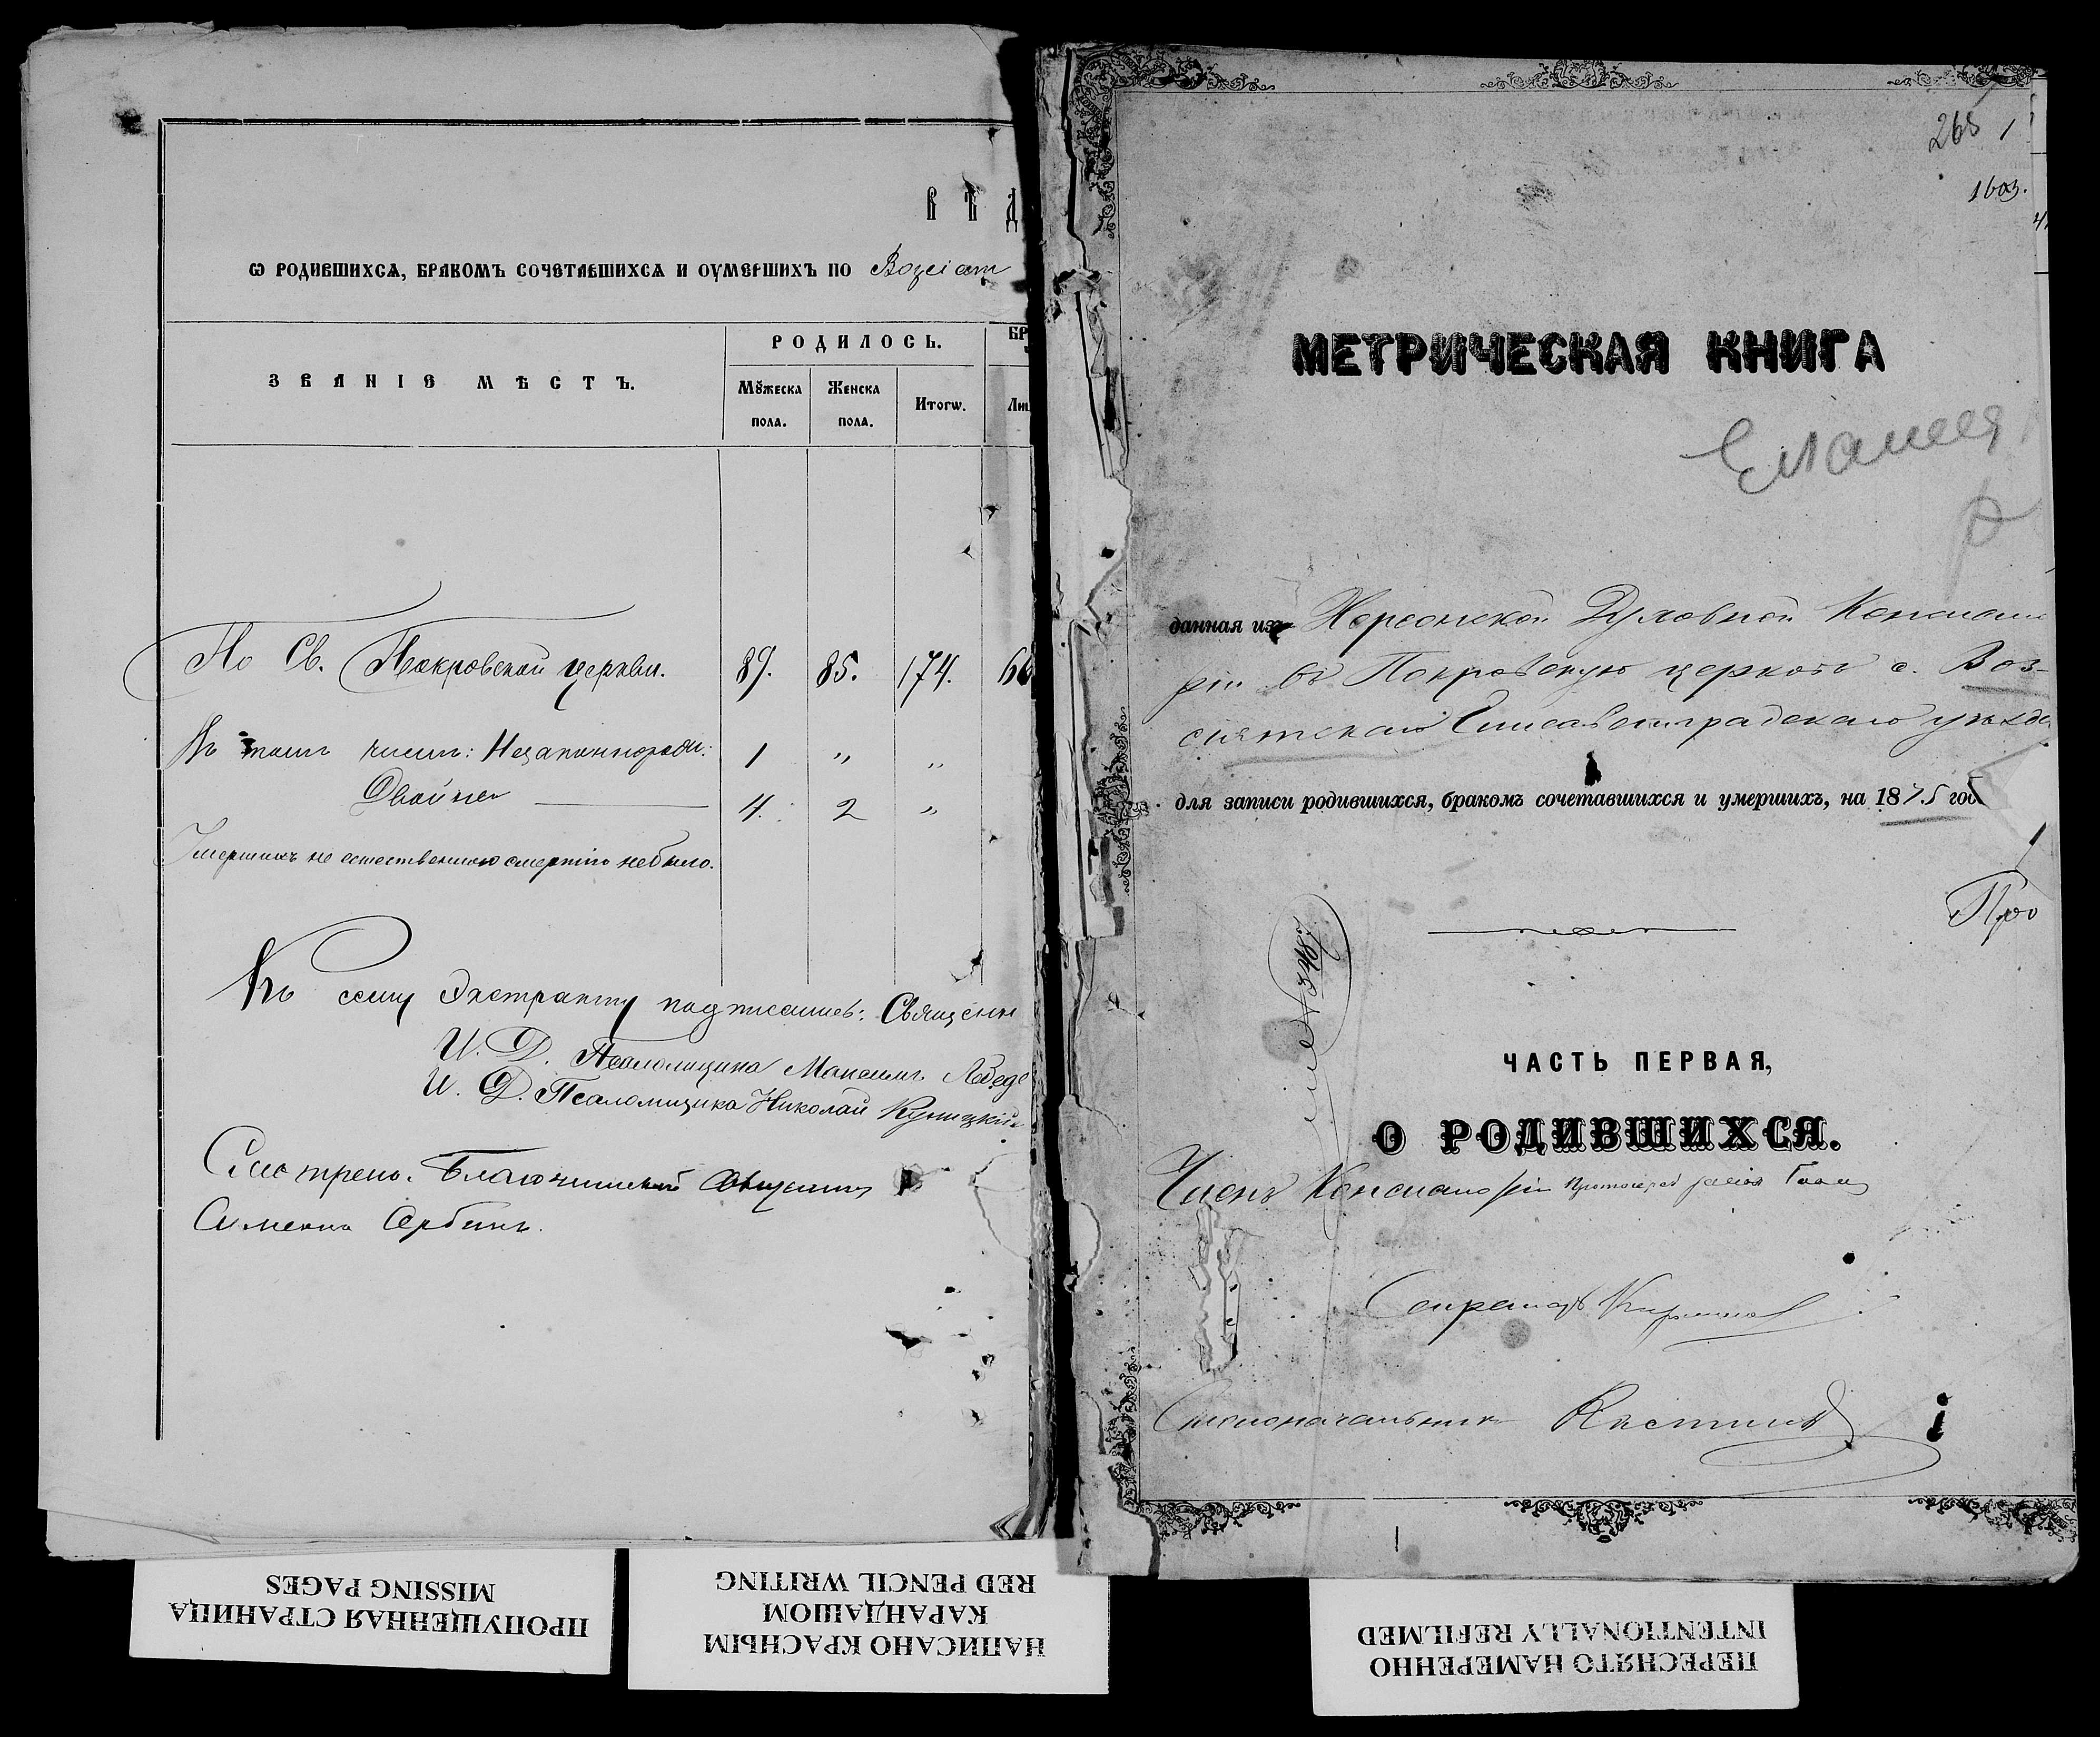 ВѢД
Ѡ РОДИВШИХСѦ, БРАКОМЪ СОЧЕТАВШИХСѦ И ОУМЕРШИХЪ ПО Возсіят
РОДИЛОСЬ.
БР
ЗВАНІЕ МѢСТЪ.
Мꙋжеска пола.
Женска пола.
Итогѡ.
По Св. Покровской церкви. 89. 85. 174. 66
Въ томъ числѣ: Незаконнорожд: 1 " "
Двойни 4. 2 "
Умершихъ не естественною смертію небыло.
Къ сему Экстракту подписались: Священн
И. Д. Псаломщика Максимъ Лебеде
И. Д. Псаломщика Николай Куницкій
Смотрено. Благочинный Священникъ
Симеонъ Сербинъ.
265 1
1603.
МЕТРИЧЕСКАЯ КНИГА
данная изъ Херсонской Духовной Консисто
ріи въ Покровскую церковь с. Воз-
сіятскаго Елисаветградскаго уѣзда
для записи родившихся, бракомъ сочетавшихся и умершихъ, на 1875 год
Про
ЧАСТЬ ПЕРВАЯ,
О РОДИВШИХСЯ.
Членъ Консисторіи Протоіерей
Секретарь
Столоначальникъ
ПРОПУЩЕННАЯ СТРАНИЦА
MISSING PAGES
НАПИСАНО КРАСНЫМ
КАРАНДАШОМ
RED PENCIL WRITING
ПЕРЕСНЯТО НАМЕРЕННО
INTENTIONALLY REFILMED